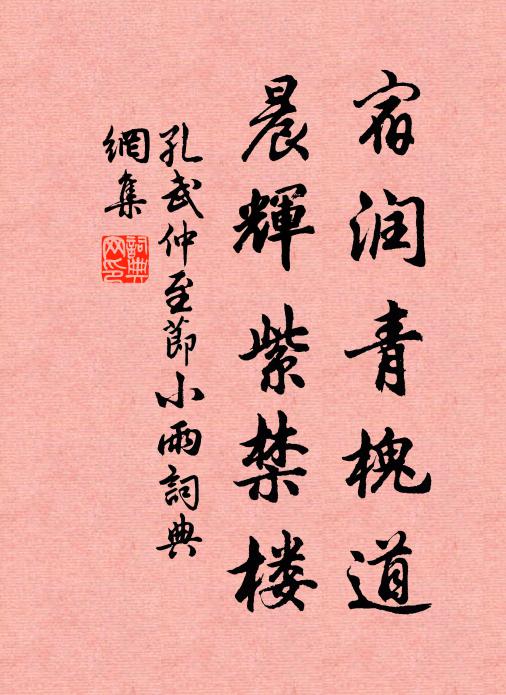 宿润青槐道
晨輝紫禁楼
孔武仲至節小雨詞典
網集
詞典
网印